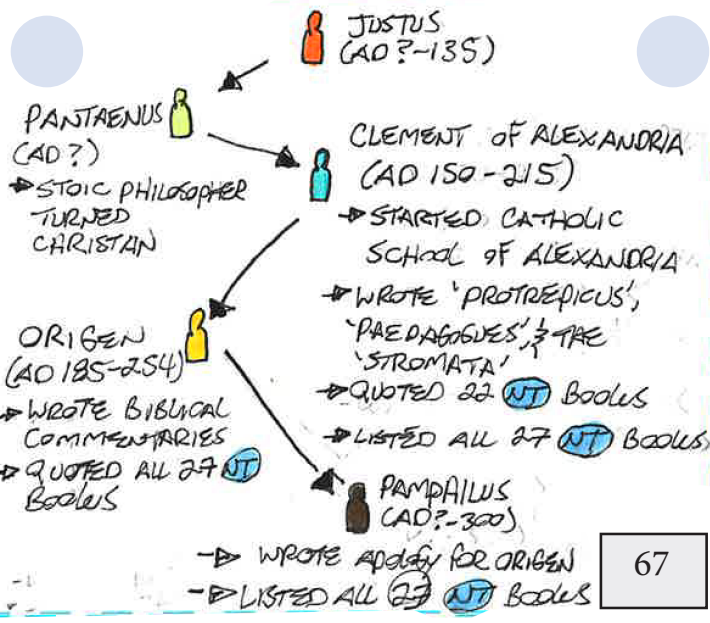 JUSTUS
(AD ?-135)
PANTAENUS
(AD ?)
STOIC PHILOSOPHER
TURNED
CHRISTAN
CLEMENT OF ALEXANDRIA
(AD 150-215)
STARTED CATHOLIC
SCHOOL OF ALEXANDRIA
WROTE 'PROTREPICUS',
'PAEDAGOGUES', & THE
'STROMATA'
QUOTED 22 NT BOOKS
LISTED ALL 27 NT BOOKS
ORIGEN
(AD 185-254)
WROTE BIBLICAL
COMMENTARIES
QUOTED ALL 27 NT
BOOKS
PAMPHILUS
(AD?-300)
WROTE APOLOGY FOR ORIGEN
LISTED ALL 27 NT BOOKS
67